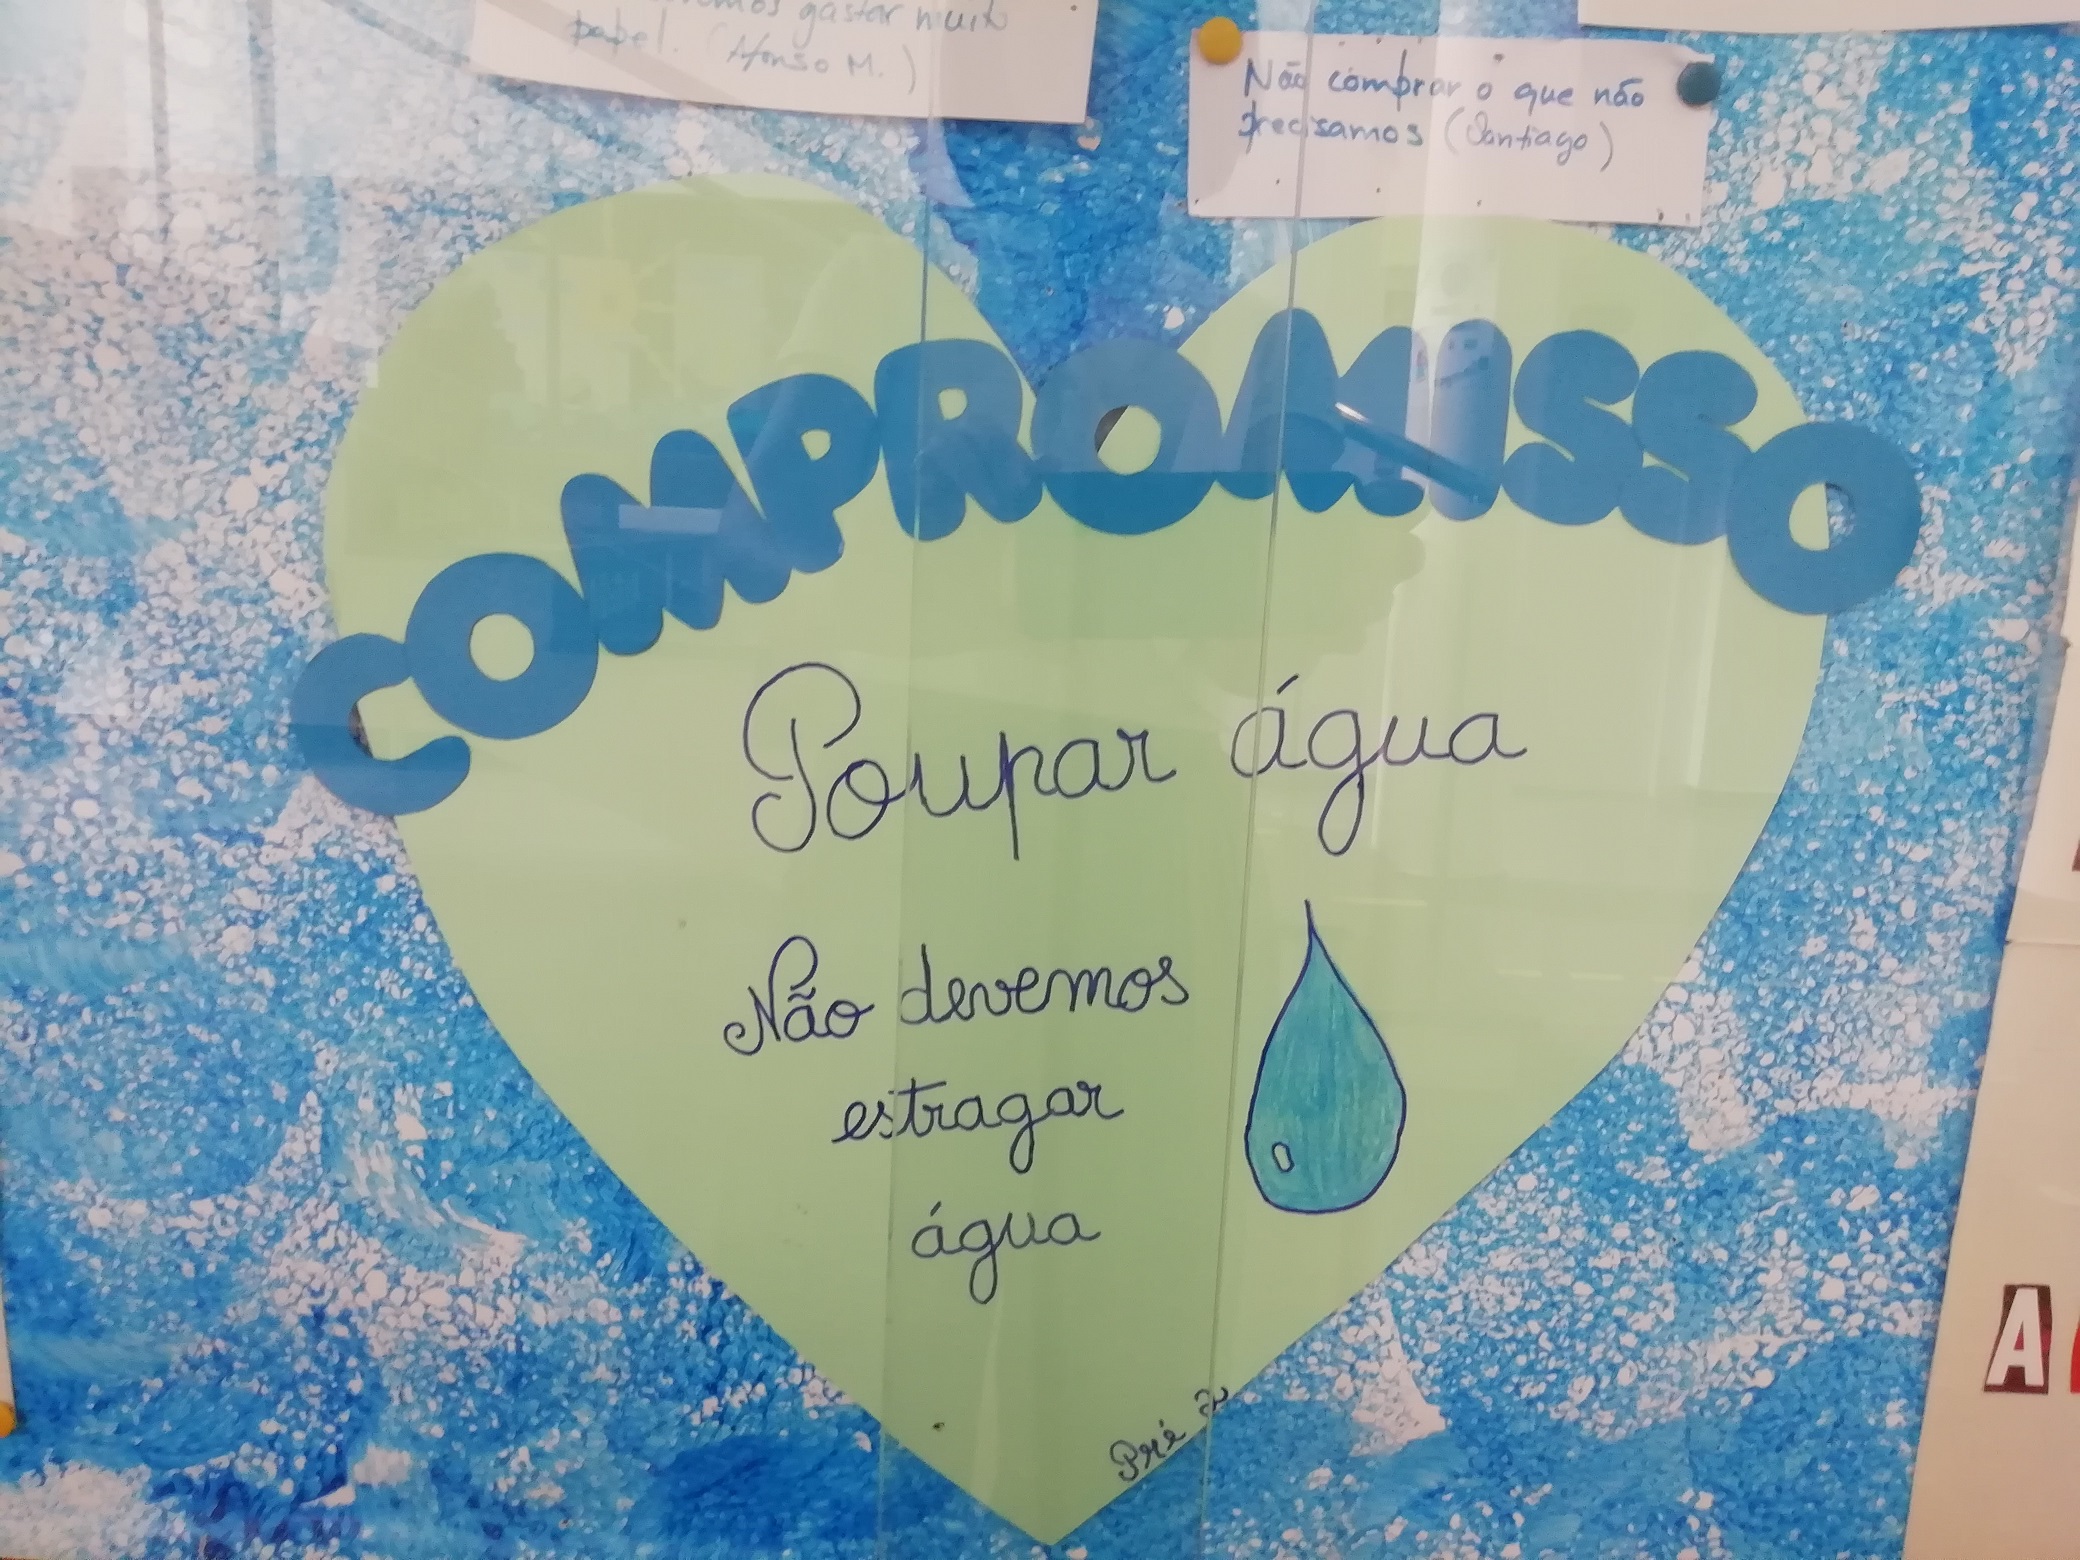 gastar muito
papel. (Afonso M.)
Não comprar o que não
precisamos (Santiago)
COMPROMISSO
Poupar água
Não devemos
estragar
água
Pré
A